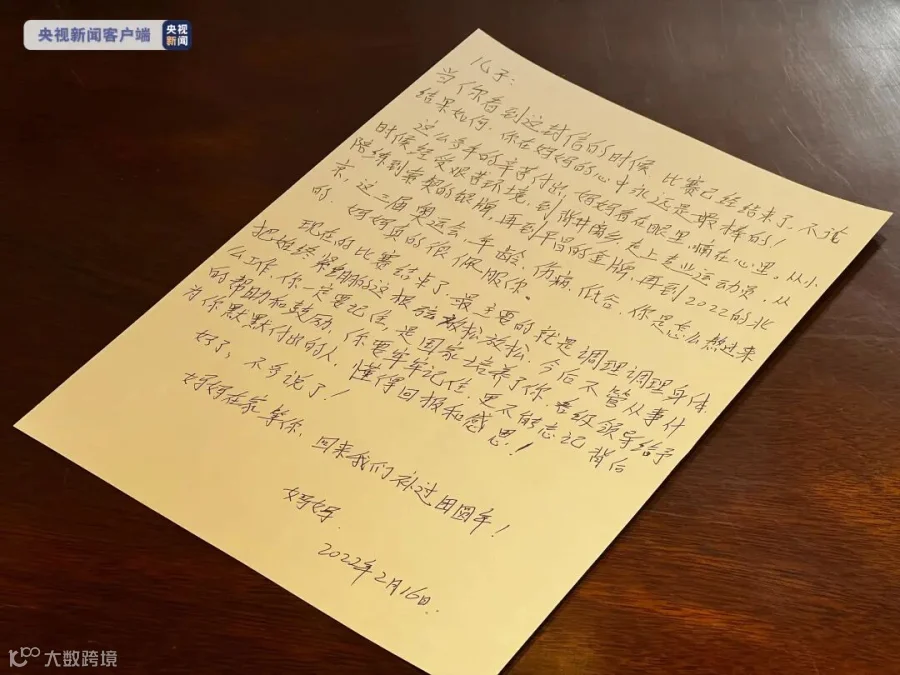 央视新闻客户端
央视
新闻
儿子:
当你看到这封信的时候 比赛已经结束了,不论
结果如何,你在妈妈的心中永远是最棒的!
这么多年的辛苦付出,妈妈看在眼里,痛在心里。从小
时候经受艰苦环境,到背井离乡,走上专业运动员,从
陪练到索契的银牌,再到平昌的金牌,再到2022的北
京,这三届奥运会,年龄、伤病、低谷,你是怎么熬过来
的,妈妈真的很佩服你。
现在的比赛结束了,最主要的就是调理调理身体,
把始终紧绷的这根弦放松放松,今后不管从事什
么工作,你一定要记住,是国家培养了你,各级领导给予
的帮助和鼓励,你要牢牢记住,更不能忘记 背后
为你默默付出的人,懂得回报和感恩!
好了,不多说了!
妈妈在家等你,回来我们补过团圆年!
妈妈.
2022年2月16日.
大数跨境